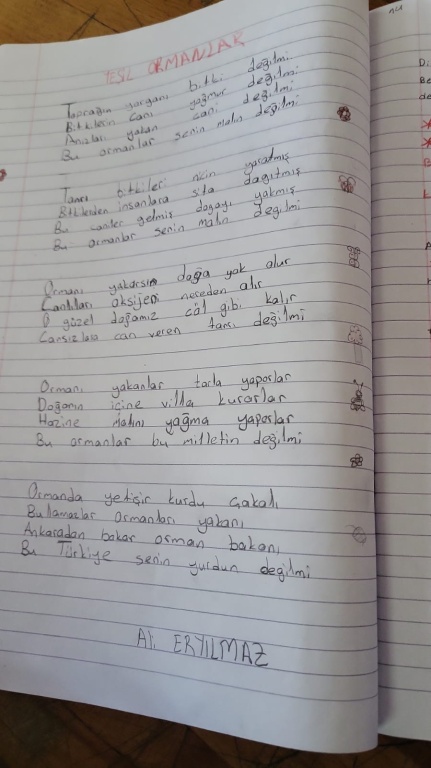 YEŞİL ORMANLAR
Toprağın yorganı bitki değilmi
Bitkilerin canı yağmur değilmi
yakan cani değilmi
Bu ormanlar senin malın değilmi
Tanrı bitkileri niçin yaratmış
Bitkilerden insanlara şifa dağıtmış
Bu caniler gelmiş doğayı yakmış
Bu ormanlar senin malın değilmi
Ormanı yakarsın doğa yok olur
Canlılar oksijen nereden alır
O güzel doğamız çöl gibi kalır
Cansızlara can veren tanrı değilmi
Ormanı yakanlar tarla yaporlar
Doğanın içine villa kurorlar
Hazine malını yağma yaporlar
Bu ormanlar bu milletin değilmi
Ormanda yetişir kurdu çakalı
Bullamazlar ormanları yakanı
Ankaradan bakar orman bakanı
Bu Türkiye senin yurdun değilmi
Ali ERYILMAZ